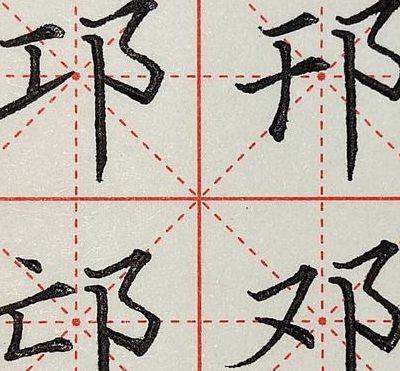 邛邗
邙邓